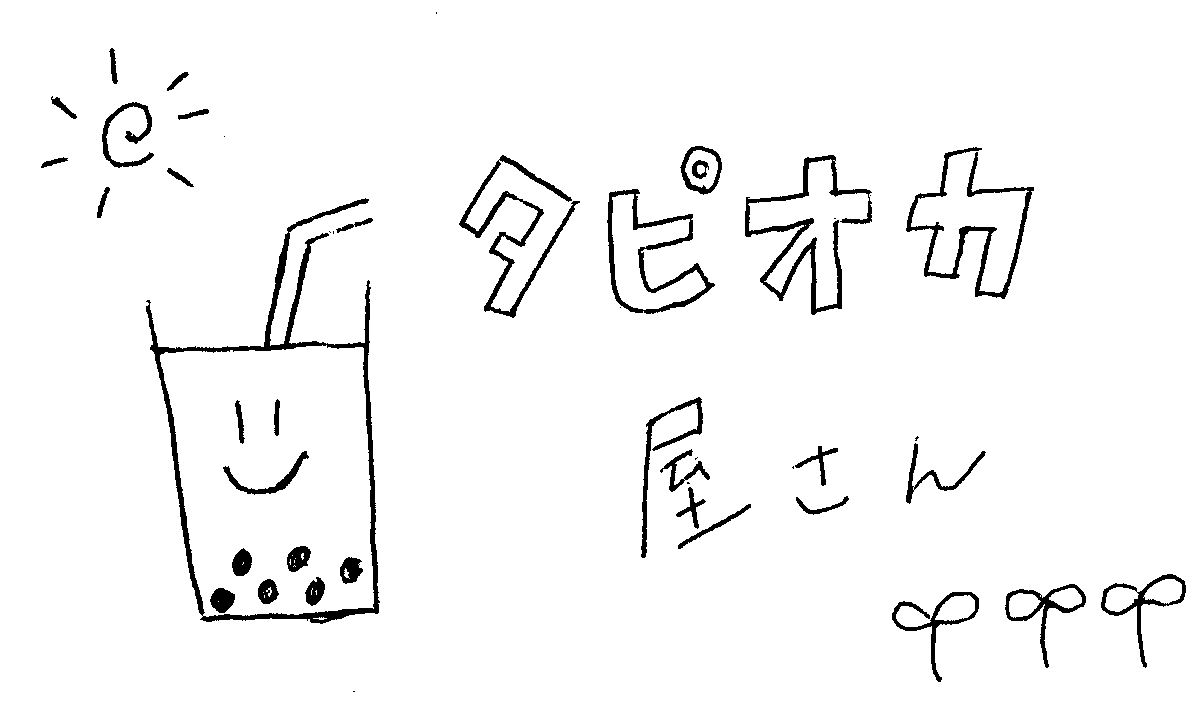 タピオカ
屋さん